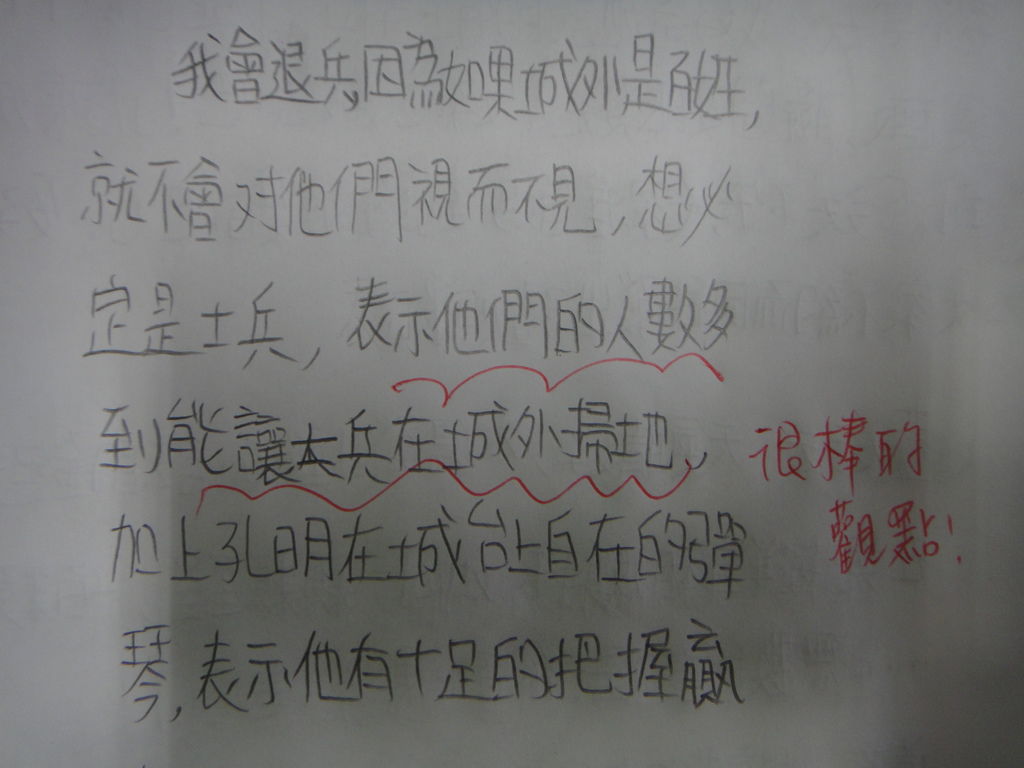 我會退兵,因為如果城外是百姓,
就不會对他們視而不見,想必
定是士兵,表示他們的人數多
到能讓大兵在城外掃地,
很棒的
觀點!
加上孔明在城台上自在的彈
琴,表示他有十足的把握贏